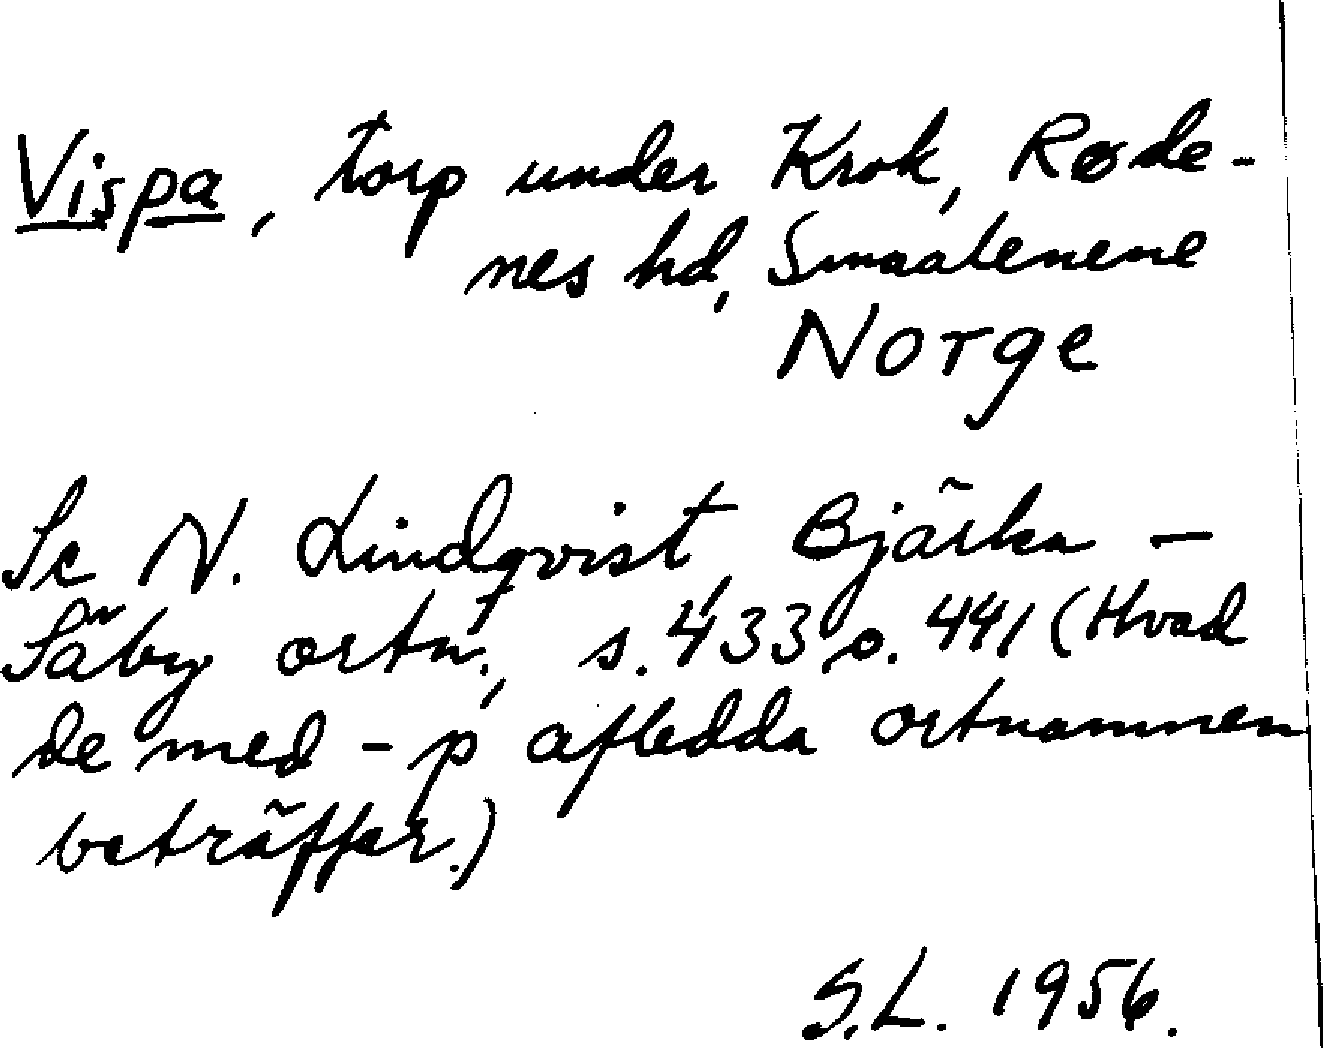 Vispa, torp under Krok, Røde-
nes hd, Smaalenene
Norge
Se N. Lindqvist, Bjärka -
Säby ortn., s. 433 o. 441 (Hvad
de med -p afledda ortnamnen
beträffar.)
S.L. 1956.